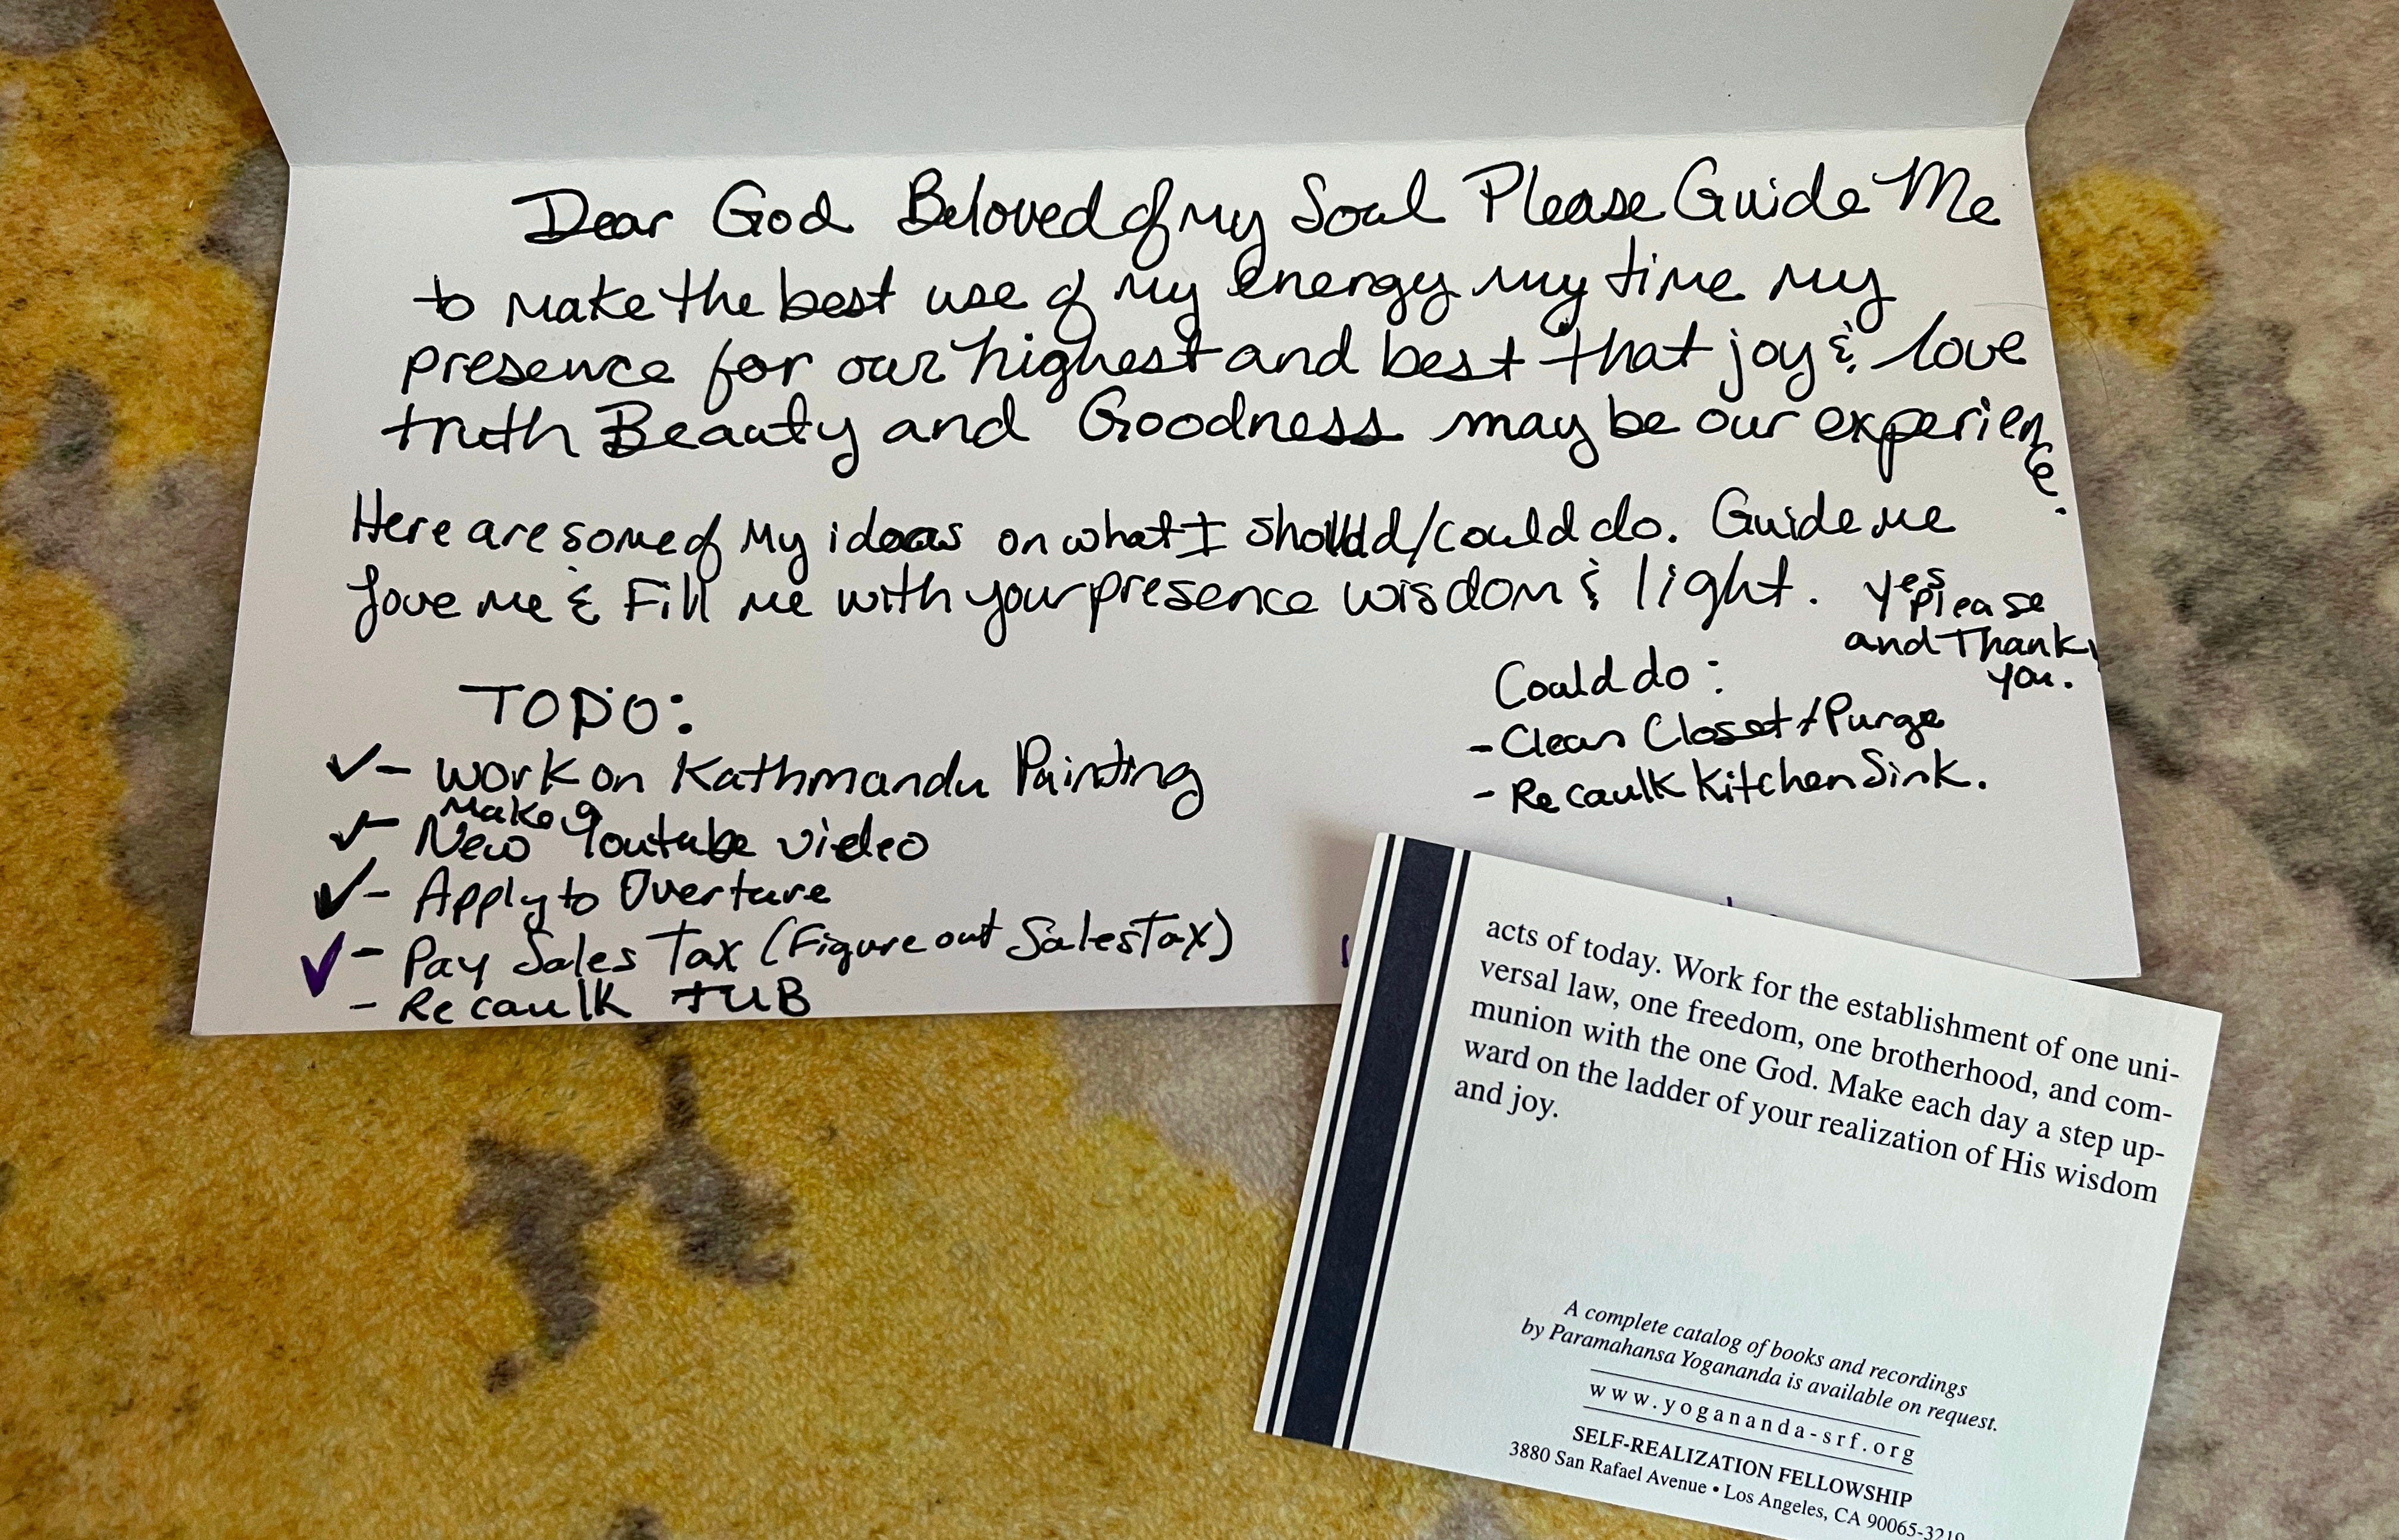 Dear God Beloved of my Soul Please Guide Me
to make the best use of my energy my time my
presence for our highest and best that joy & love
truth Beauty and Goodness may be our experien
ce.
Here are some of My ideas on what I should/could do. Guide me
Love me & Fill me with your presence wisdom & light.
yes please
and Thank
you.
TODO:
✓- Work on Kathmandu Painting
Make a
✓- New Youtube video
✓- Apply to Overture
✓- Pay Sales Tax (Figure out Sales Tax)
- Re caulk TUB
Could do:
- Clean Closet + Purge
- Re caulk Kitchen Sink.
acts of today. Work for the establishment of one uni-
versal law, one freedom, one brotherhood, and com-
munion with the one God. Make each day a step up-
ward on the ladder of your realization of His wisdom
and joy.
A complete catalog of books and recordings
by Paramahansa Yogananda is available on request.
www.yogananda-srf.org
SELF-REALIZATION FELLOWSHIP
3880 San Rafael Avenue • Los Angeles, CA 90065-3219